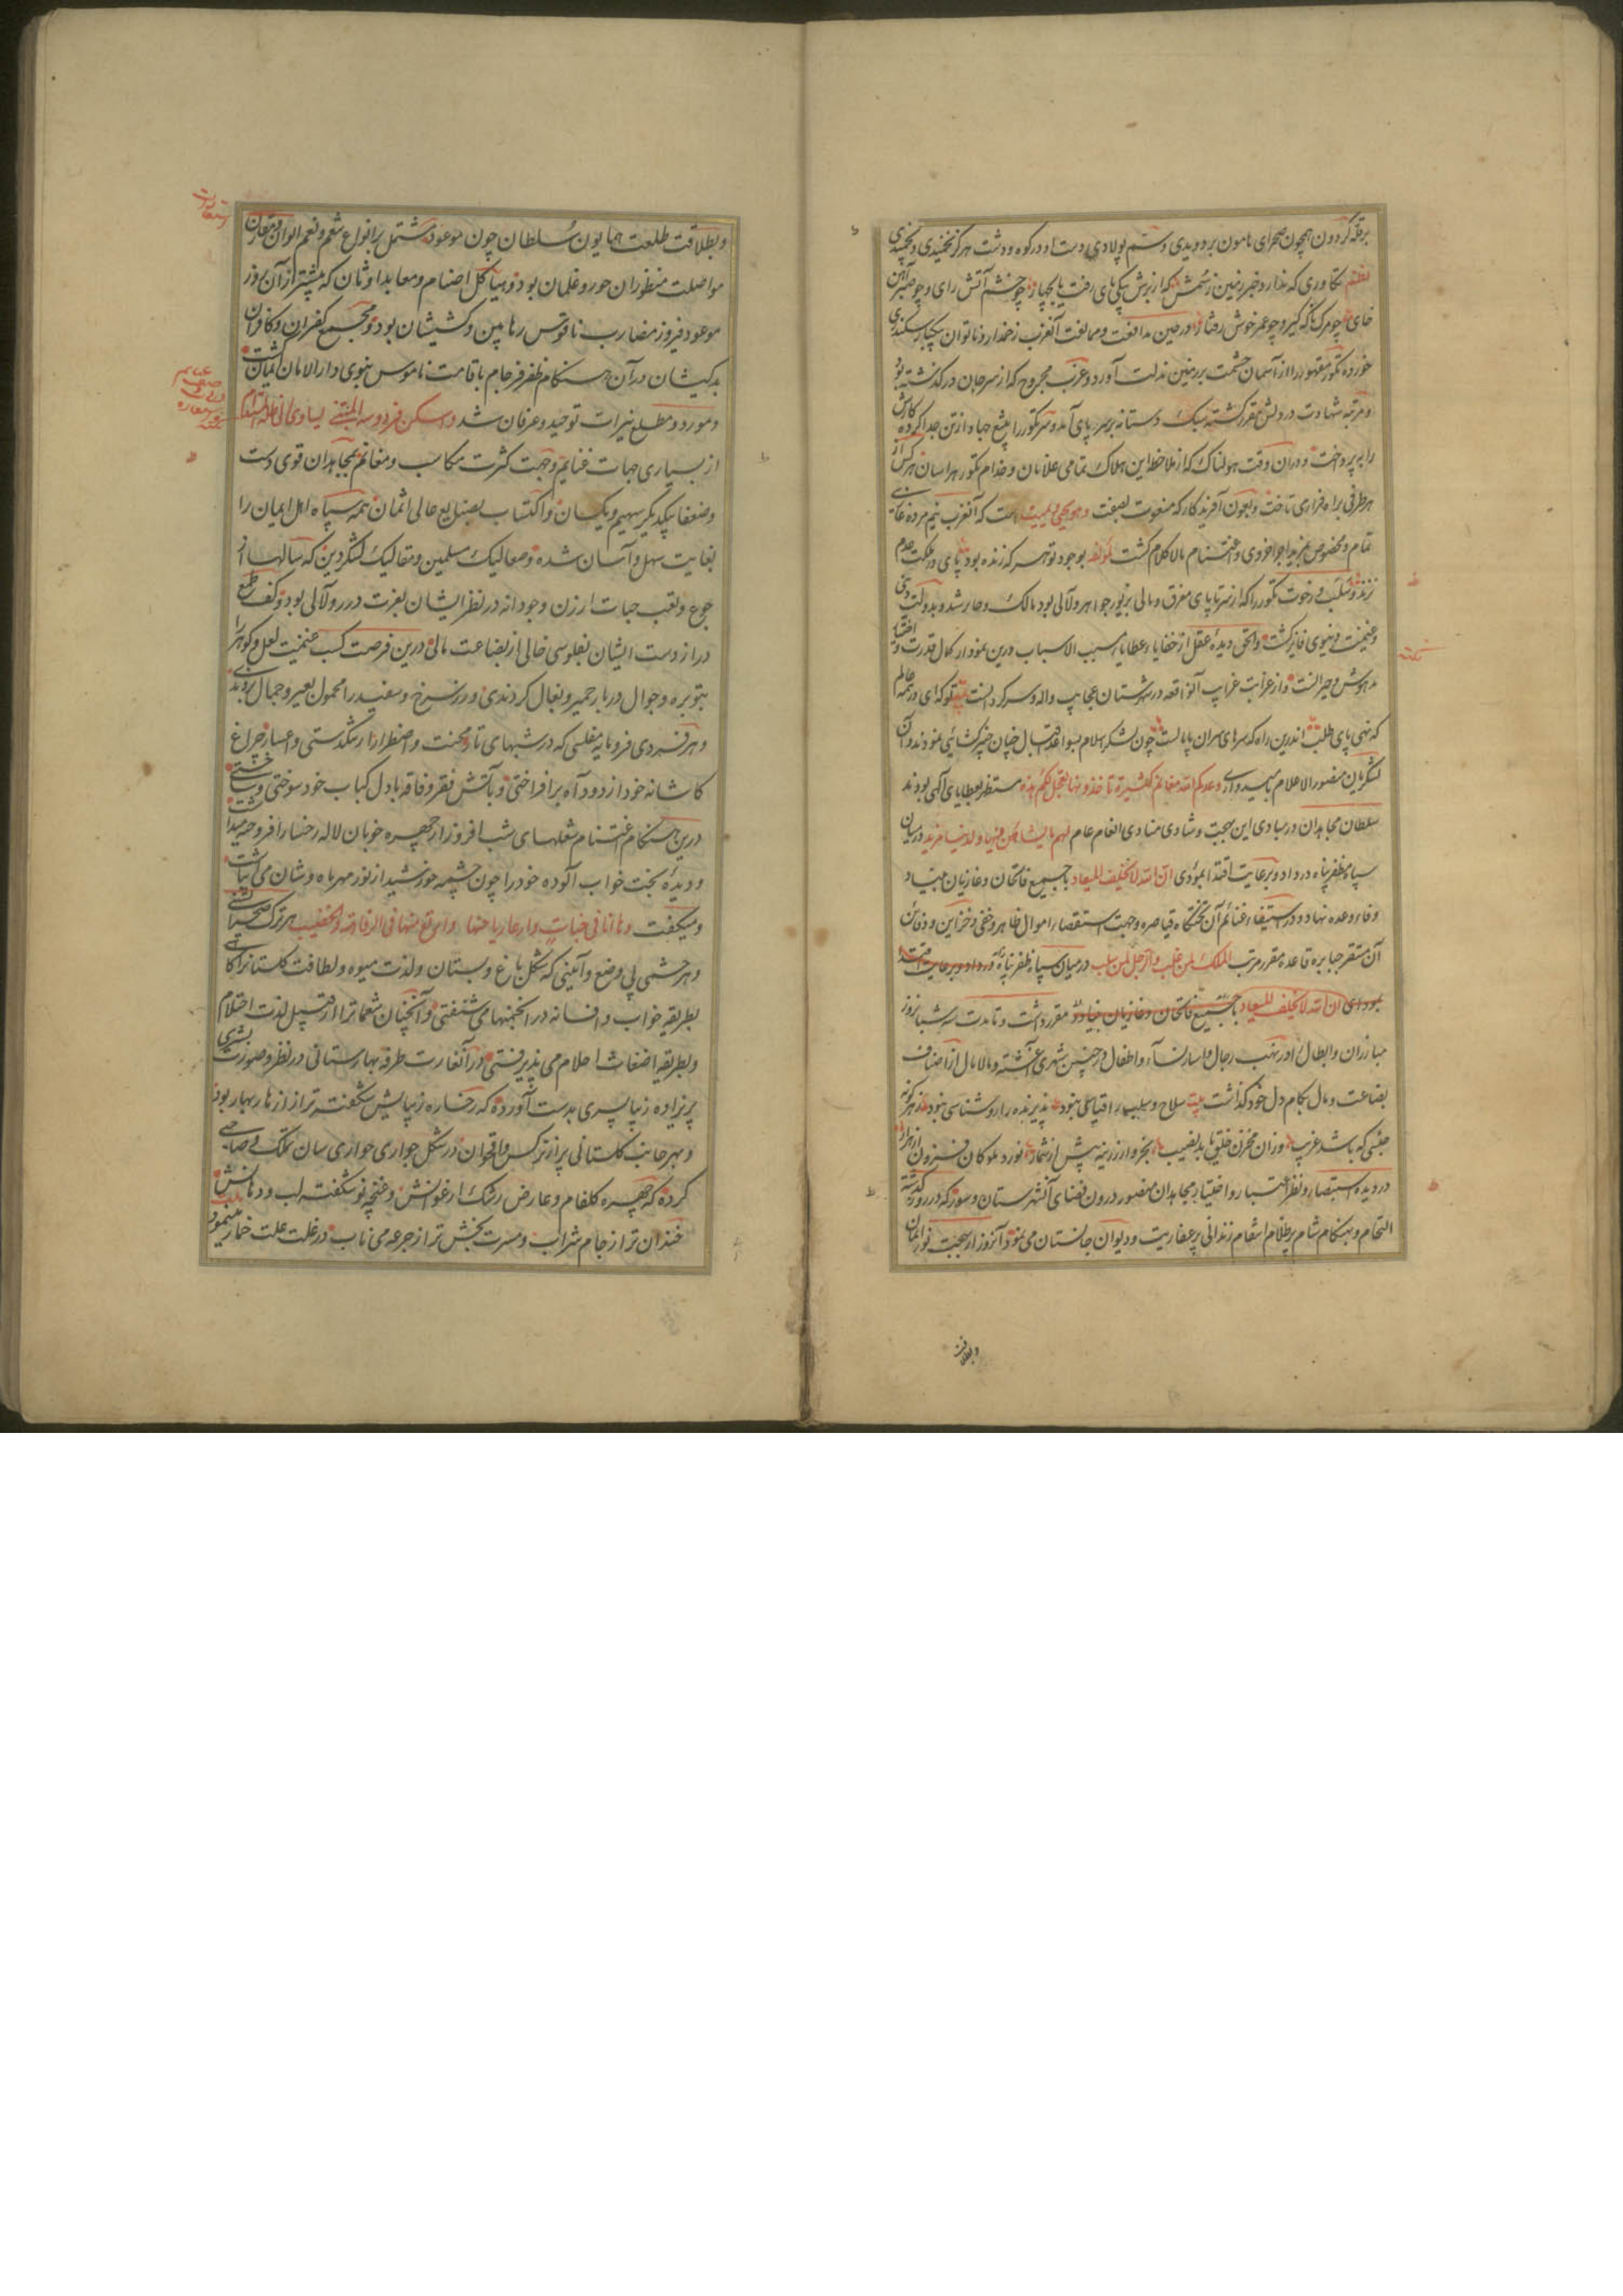 برقله گردون همچون صحرای هامون بر دویدی و سم پولادی دست او در کوه و دشت هرگز نخمیدی و نچمیدی
نظم تکاوری که ندارد خبر زمین ز سمش که از برش پای رفت یا بچهار چو خشم آتش رای و چو صبر آهن
خای چو مرک باد گیر و چو عمر خوش رفتار در حین مدافعت و ممانعت آن عزب زخمدار و ناتوان بیکبار سکندری
خورده تکور مقهور را از آسمان حشمت بر زمین مذلت آورد و عزب مجروح که از سر جان در گذشته بود
و مرتبه شهادت در دلش مقرر گشته سبک دستانه بر سر پای آمد و سر تکور را بتیغ جهاد از تن جدا کرده کارش
را بپرداخت و در آن وقت هولناک که از ملاحظه این هلاک تمامی غلامان و خدام تکور هراسان هر کس از
هر طرفی براه فراری تاخت و بعون آفریدگار که منعوت بصفت و هو یحیی و یمیت است که آن عزب نیم مرده
تمام و مخصوص بمزید اجر اخروی و اغتنام مالا کلام گشت لمؤلفه بوجود تو هر که زنده بود پای در ملکت عدم
نزند و سلب و رخوت تکور را که از سر تا پای مغرق و مالی بزیور جواهر و لآلی بود مالک و حایز شد و بدولت دینی
و غنیمت دنیوی فایز گشت و الحق دیده عقل از خفایا و عطایای مسبب الاسباب درین نمودار کمال قدرت و اقتدار
مدهوش و حیرانست و از غرابت غرایب آن واقعه در شهرستان عجایب واله و سرگردانست بیت تو که ای در همه عالم
که نهی پای طلب اندرین راه که سرهای سران پامالست چون لشکر اسلام بسواعد اقبال چنان خیبر گشایی نمودند و آن
لشکریان منصور الاعلام بامیدواری وعدکم الله مغانم کثیرة تاخذونها فعجل لکم هذه مستظهر بعطایای الهی بودند
سلطان مجاهدان در مبادی این بهجت و شادی منادی انعام عام لهم ما یشاؤن فیها و لدینا مزید در میان
سپاه ظفر پناه در داد و برعایت اقتدا بمودی ان الله لا یخلف المیعاد با جمیع فاتحان و غازیان بنیاد
وفاء وعده نهاد و در استیفاء غنائم آن تختگاه قیاصره و جهت استقصاء اموال ظاهر و خفی و خزاین و دفائن
آن مستقر جبابره قاعده مقرر مرتب الملک لمن غلب و الرجل لمن سلب در میان سپاه ظفر پناه در داد و برعایت اقتدا
بمودای ان الله لا یخلف المیعاد با جمیع فاتحان و غازیان بنیاد مقرر داشت و تا مدت سه شبانروز
مبارزان و ابطال را در نهب رجال و اسار نساء و اطفال در چنین شهری آغشته و مالامال از اصناف
بضاعت و مال بکام دل خود گذاشت بیت سلاح و سلب را قیاسی نبود پذیرنده را رو شناسی نبود ز هر گونه
جنسی که باشد غریب وزان مخزن خلق یابد نصیب بخروار زرینه بیش از شمار نورد ملوکان فزون از هزار
در دیده استبصار و نظر اعتبار و اختیار مجاهدان منصور درون فضای آن شهرستان و سور که در روز گذشته
التحام و بهنگام شام پر ظلام انتقام زندانی پر عفاریت و دیوان جانستان می نمود آنروز از بهجت نور ایمان
و بطلاقت
و بطلاقت طلعت همایون سلطان چون موعود مشتمل بر انواع نعم و نعیم الوان و مقارن
مواصلت منظوران حور و غلمان بود و هیاکل اصنام و معابد اوثان که پیشتر از آن روز
موعود فیروز مضارب ناقوس رهابین و کشیشان بود و مجمع کفران و کافران
بدکیشان در آن هنگام ظفر فرجام باقامت ناموس نبوی دار الامان گشت
و مورد و مطلع نیرات توحید و عرفان شد
از بسیاری جهات غنایم و جهت کثرت مکاسب و مغانم مجاهدان قوی دست
و ضعفا بیکدیگر سهیم و یکسان و اکتساب بضایع عالی اثمان همه سپاه اهل ایمان را
بغایت سهل و آسان شده و صعالیک مسلمین و مفالیک لشکر دین که سالها از
جوع و تعب حبات ارزن و جو دانه در نظر ایشان بعزت درر و لآلی بود و کف طمع
دراز دست ایشان بفلوسی خالی از بضاعت مالی درین فرصت کسب غنیمت لعل و گوهر را
بتوبره و جوال در بار حمیر و بغال کردندی و زر سرخ و سفید را محمول بعیر و جمال بردند
و هر فسرده فرومایه مفلسی که در شبهای تار محنت و اضطرار از تنگدستی و اعسار چراغ
کاشانه خود از دود آه بر افراختی و بآتش فقر و فاقه با دل کباب خود سوختی و ساختی
درین هنگام اغتنام شعلهای شب افروز از چهره خوبان لاله رخسار افروخته میداشت
و دیده بخت خواب آلوده خود را چون چشمه خورشید از نور مهر ماه وشان می انباشت
و میگفت و ها انا فی جنات و ارعا ریاضها و ارتع منها فی الرفاهة و الخصب هر ترک صحرا نشینی
و هر حشمی بی وضع و آیینی که شکل باغ و بستان و لذت میوه و لطافت گلستان را گاهی
بطریقه خواب و افسانه در انجمنها می شنفتی و آنچنان متنعمات را از قبیل لذت احتلام
و بطریقه اضغاث احلام می پذیرفتی در آن غارت طرفه بهارستانی در نظر و صورت بشری
پریزاده زیبا پسری بدست آورده که رخساره زیبایش شکفته تر از ازهار بهار بود
و بهر جانب گلستانی پر از نرگس و اقحوان در شکل جواری حواری سان تملک و تصاحب
کرده که چهره گلفام و عارض رشک ارغوانش و غنچه نو شکفته لب و دهانش
خندان تر از جام شراب و مسرت بخش تر از جرعه می ناب در غلت علت خمار مینمود